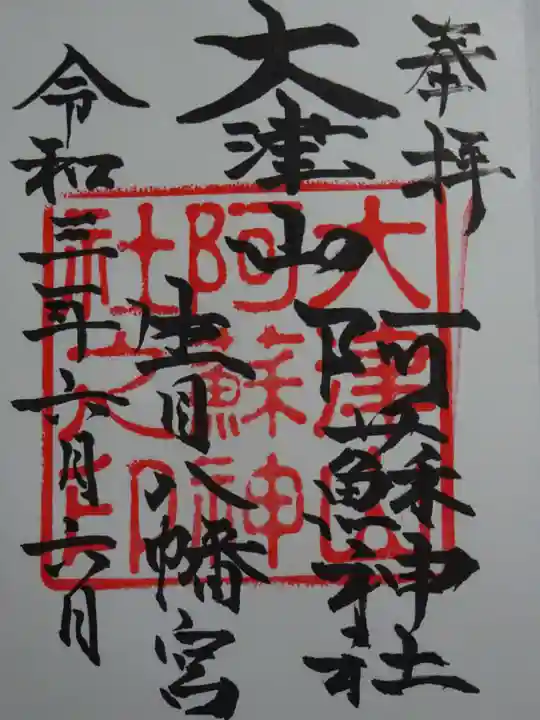 奉拝
大津山の
阿蘇神社
生目八幡宮
令和三年六月六日
大津山
阿蘇神
社之印